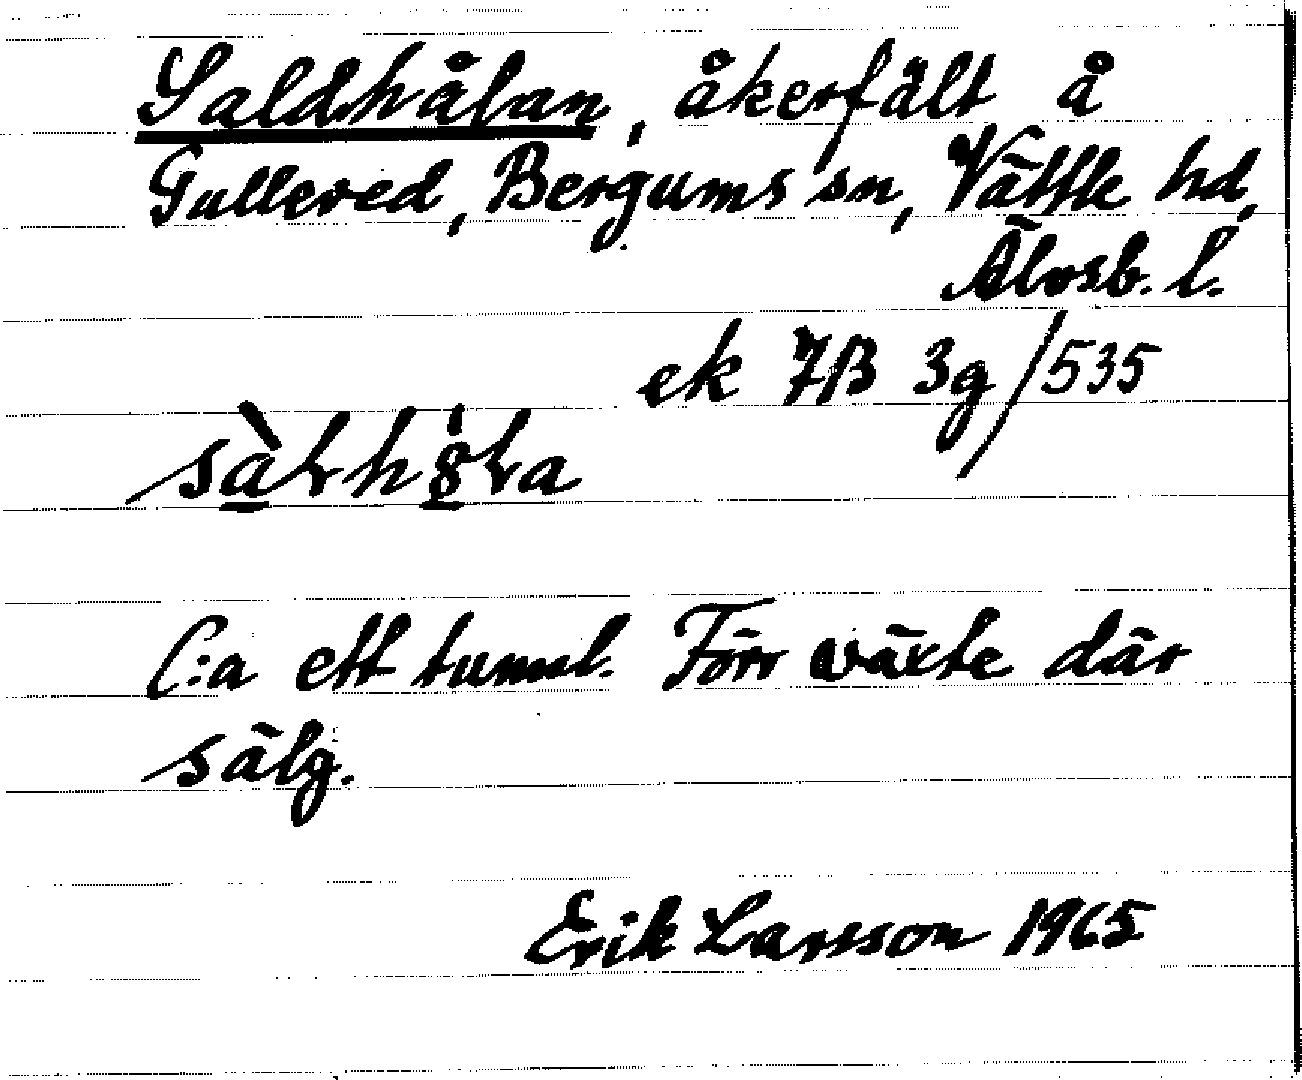 Saldhålan, åkerfält å
Gullered, Bergums sn, Vättle hd,
Älvsb. l.
ek 7B 3g/535
C:a ett tunnl. Förr växte där
sälg.
Erik Larsson 1965